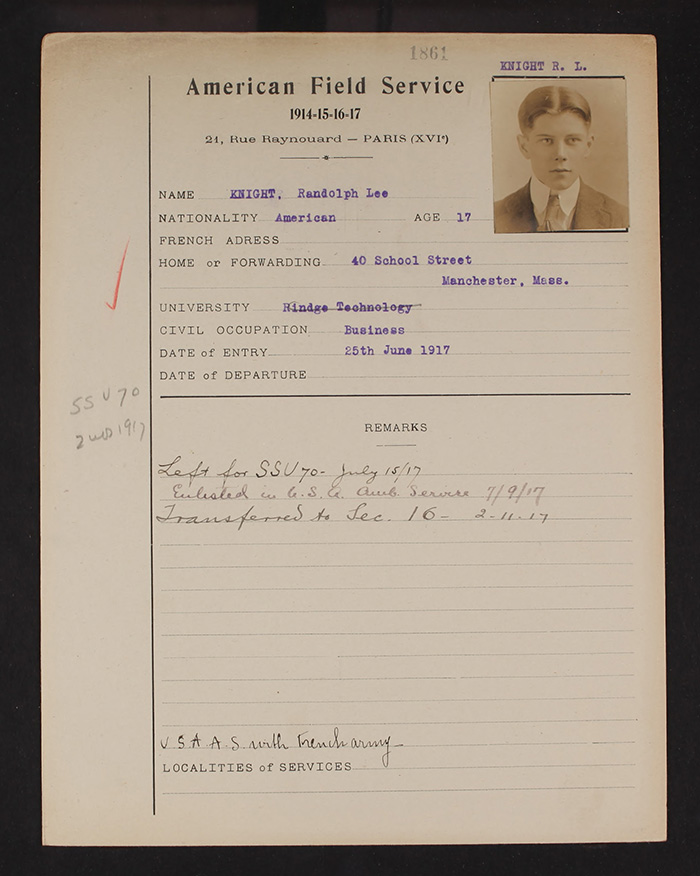 1861
KNIGHT R. L.
American Field Service
1914-15-16-17
21, Rue Raynouard — PARIS (XVIe)
NAME KNIGHT, Randolph Lee
NATIONALITY American AGE 17
FRENCH ADRESS
HOME or FORWARDING 40 School Street
Manchester, Mass.
UNIVERSITY Rindge Technology
CIVIL OCCUPATION Business
DATE of ENTRY 25th June 1917
DATE of DEPARTURE
SSU 70
1917
REMARKS
Left for SSU 70 - July 15/17
Enlisted in U.S.A. Amb. Service 7/9/17
Transferred to Sec. 16 - 2-11-17
U S A A S with French army
LOCALITIES of SERVICES